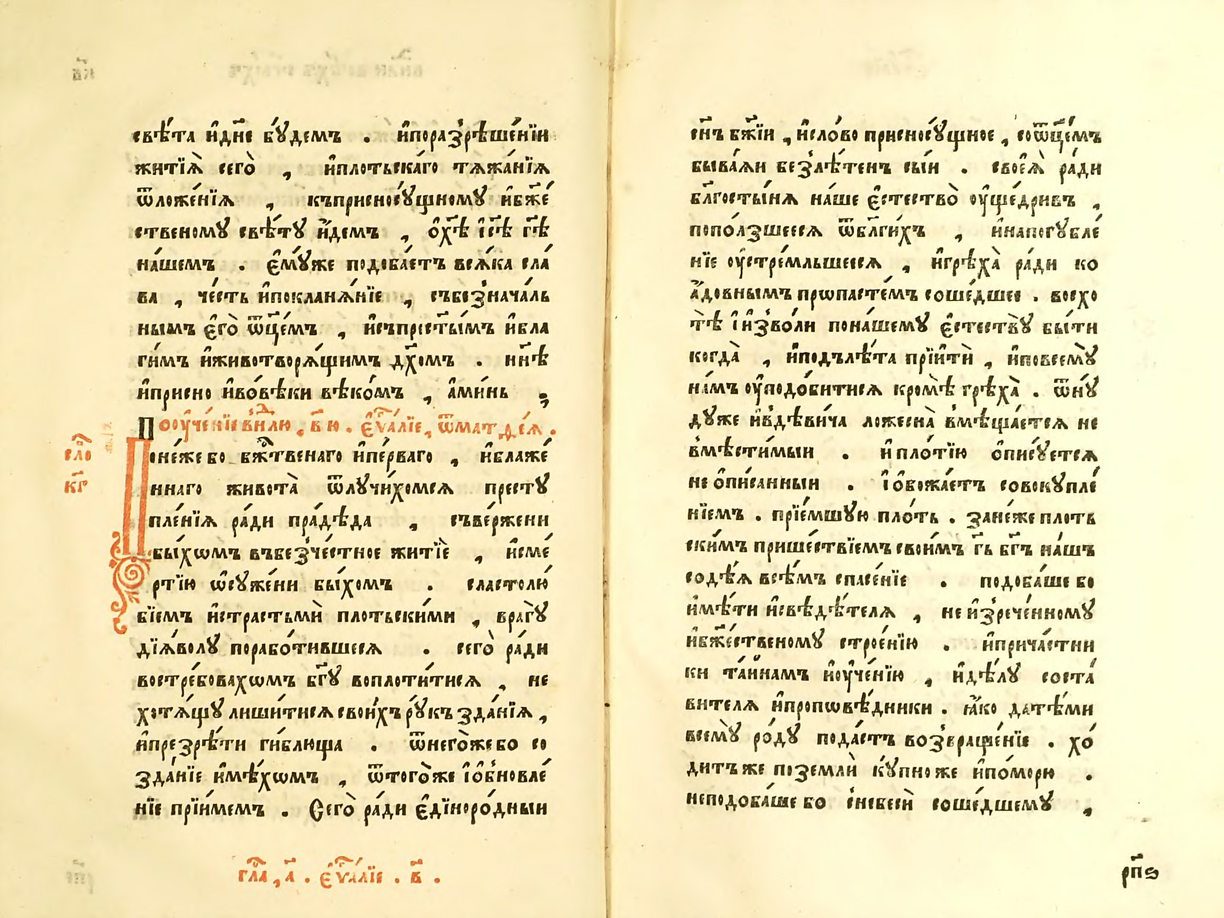 свѣта и҆дн҃е бꙋ́демъ . и҆поразрѣше́нїи
житїѧ̀ сего̀ , и҆плотьска́го тѧжа́нїѧ
ѿложе́нїѧ , къприсносꙋ́щномꙋ и҆бж҃е
ственомꙋ свѣ́тꙋ и҆́демъ , ѻ҆хс҃ѣ і҆с҃ѣ гс҃ѣ
на́шемъ . є҆мꙋ́же подоба́етъ всѧ́ка сла
ва , че́сть и҆покланѧ́нїе , събезнача́ль
нымъ є҆го̀ ѿц҃е́мъ , и҆съпрст҃ы́мъ и҆бла
ги́мъ и҆животворѧ́щимъ дх҃омъ . нн҃ѣ
и҆при́сно и҆во́вѣки вѣко́мъ , а҆ми́нь ,
Поѹ҆че́нїе внл҃ю , в҃ ю . є҆ѵа҃лїе , ѿматѳе́ѧ .
сло
к҃г
Поне́же бо бж҃твенаго и҆пе́рваго , и҆блаже́
ннаго живота̀ ѿлꙋчи́хомсѧ престꙋ
пле́нїѧ ра́ди пра́дѣда , съве́ржени
бы́хѡмъ въбезче́стное житїѐ , и҆сме́
ртїю ѡ҆сꙋ́жени бы́хомъ . сластолю́
бїемъ и҆страстьмѝ пло́тьскими , врагꙋ̀
дїѧ́волꙋ порабо́тившесѧ . сего̀ ра́ди
востре́бовахѡмъ бг҃ꙋ воплоти́тисѧ , не
хотѧ́щꙋ лиши́тисѧ свои́хъ рꙋ́къ зда́нїѧ ,
и҆презрѣ́ти ги́блюща . ѿнего́же бо со
зда́нїе и҆мѣ́хѡмъ , ѿтого́же і҆ѻ҆бновле́
нїе прїи́мемъ . Сего̀ ра́ди є҆дїноро́дныи
гла҃ , а҃ . є҆ѵа҃лїе . в҃ .
сн҃ъ бж҃їи , и҆сло́во присносꙋ́щное , соѿц҃е́мъ
быва́ѧи безлѣ́тенъ сыи . своеѧ̀ ра́ди
бл҃госты́нѧ наше є҆стество̀ ѹ҆ще́дривъ ,
попо́лзшеесѧ ѿбл҃ги́хъ , и҆напогꙋбле́
нїе ѹ҆стреми́льшеесѧ , и҆грѣха̀ ра́ди ко
а҆́довнымъ прѡпасте́мъ соше́дшее . восхо
тѣ̀ і҆и҆зво́ли понашемꙋ̀ є҆стествꙋ̀ бы́ти
когда̀ , и҆подълѣ́та прїитѝ , и҆повсемꙋ̀
на́мъ ѹ҆подо́битисѧ кромѣ̀ грѣха̀ . ѿнꙋ
дꙋ́же и҆вдѣ́вича ложесна̀ вмѣща́етсѧ не
вмѣсти́мыи . и҆ пло́тїю ѻ҆писꙋ́етсѧ
не ѻ҆пи́санныи . і҆ѻ҆божа́етъ совокꙋпле́
нїемъ . прїе́мшꙋю пло́ть . зане́же пло́ть
скимъ прише́ствїемъ свои́мъ гд҃ь бг҃ъ на́шъ
содѣ́ѧ всѣ́мъ спасе́нїе . подоба́ше бо
и҆мѣ́ти и҆свѣдѣ́телѧ , не и҆зрече́нномꙋ
и҆бж҃е́ственомꙋ строе́нїю . и҆прича́стни
ки та́инамъ и҆ѹ҆че́нїю , и҆дѣ́лꙋ соста́
вителѧ и҆проповѣ́дники . ꙗ҆́ко да тѣ́ми
всемꙋ̀ ро́дꙋ пода́стъ возвраще́нїе . хо́
дитъ же по землѝ кꙋ́пно же и҆помо́рю .
неподоба́ше бо снебесѝ соше́дшемꙋ ,
рп҃ѳ